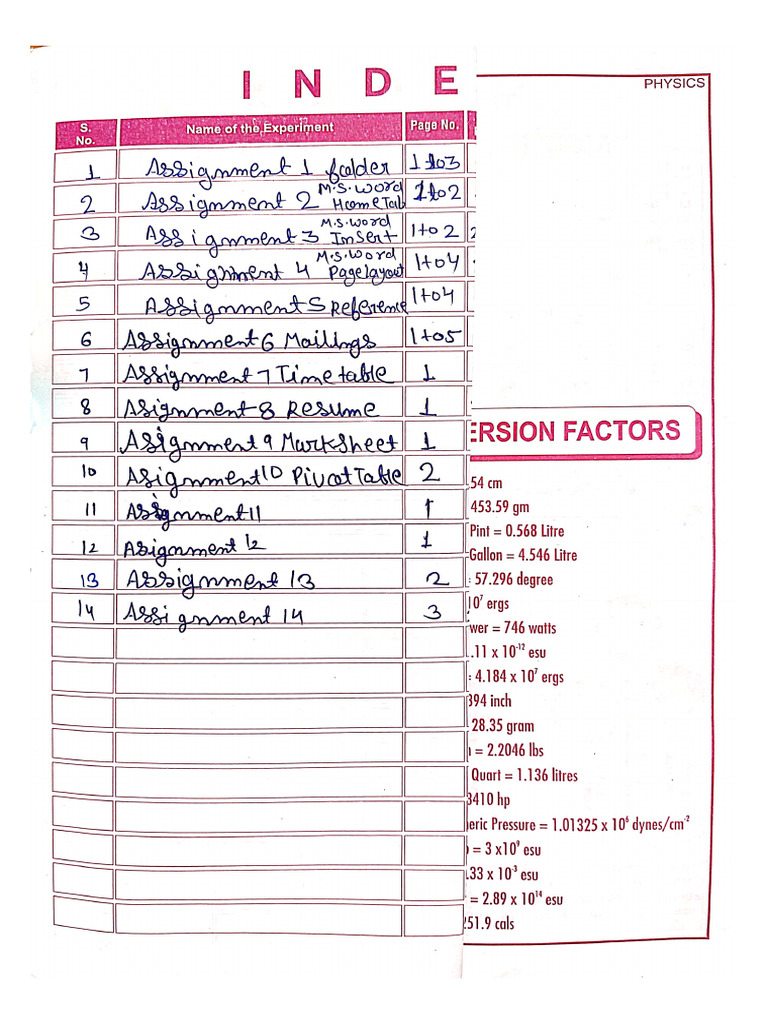 I N D E
PHYSICS
S. No. Name of the Experiment Page No.
1 Assignment 1 folder 1 to3
2 Assignment 2 M.S. Word Home Tab 1to2
3 Assignment 3 M.S. Word Insert 1to2
4 Assignment 4 M.S. Word Page layout 1to4
5 Assignment 5 Reference 1to4
6 Assignment 6 Mailings 1to5
7 Assignment 7 Time table 1
8 Asignment 8 Resume 1
9 Assignment 9 Marksheet 1
10 Asignment 10 Pivot Table 2
11 Assignment 11 1
12 Asignment 12 1
13 Assignment 13 2
14 Assignment 14 3
ERSION FACTORS
54 cm
453.59 gm
Pint = 0.568 Litre
Gallon = 4.546 Litre
= 57.296 degree
10⁷ ergs
wer = 746 watts
.11 x 10⁻¹² esu
= 4.184 x 10⁷ ergs
394 inch
28.35 gram
= 2.2046 lbs
Quart = 1.136 litres
3410 hp
eric Pressure = 1.01325 x 10⁶ dynes/cm⁻²
= 3 x10⁹ esu
.33 x 10⁻³ esu
= 2.89 x 10¹⁴ esu
251.9 cals